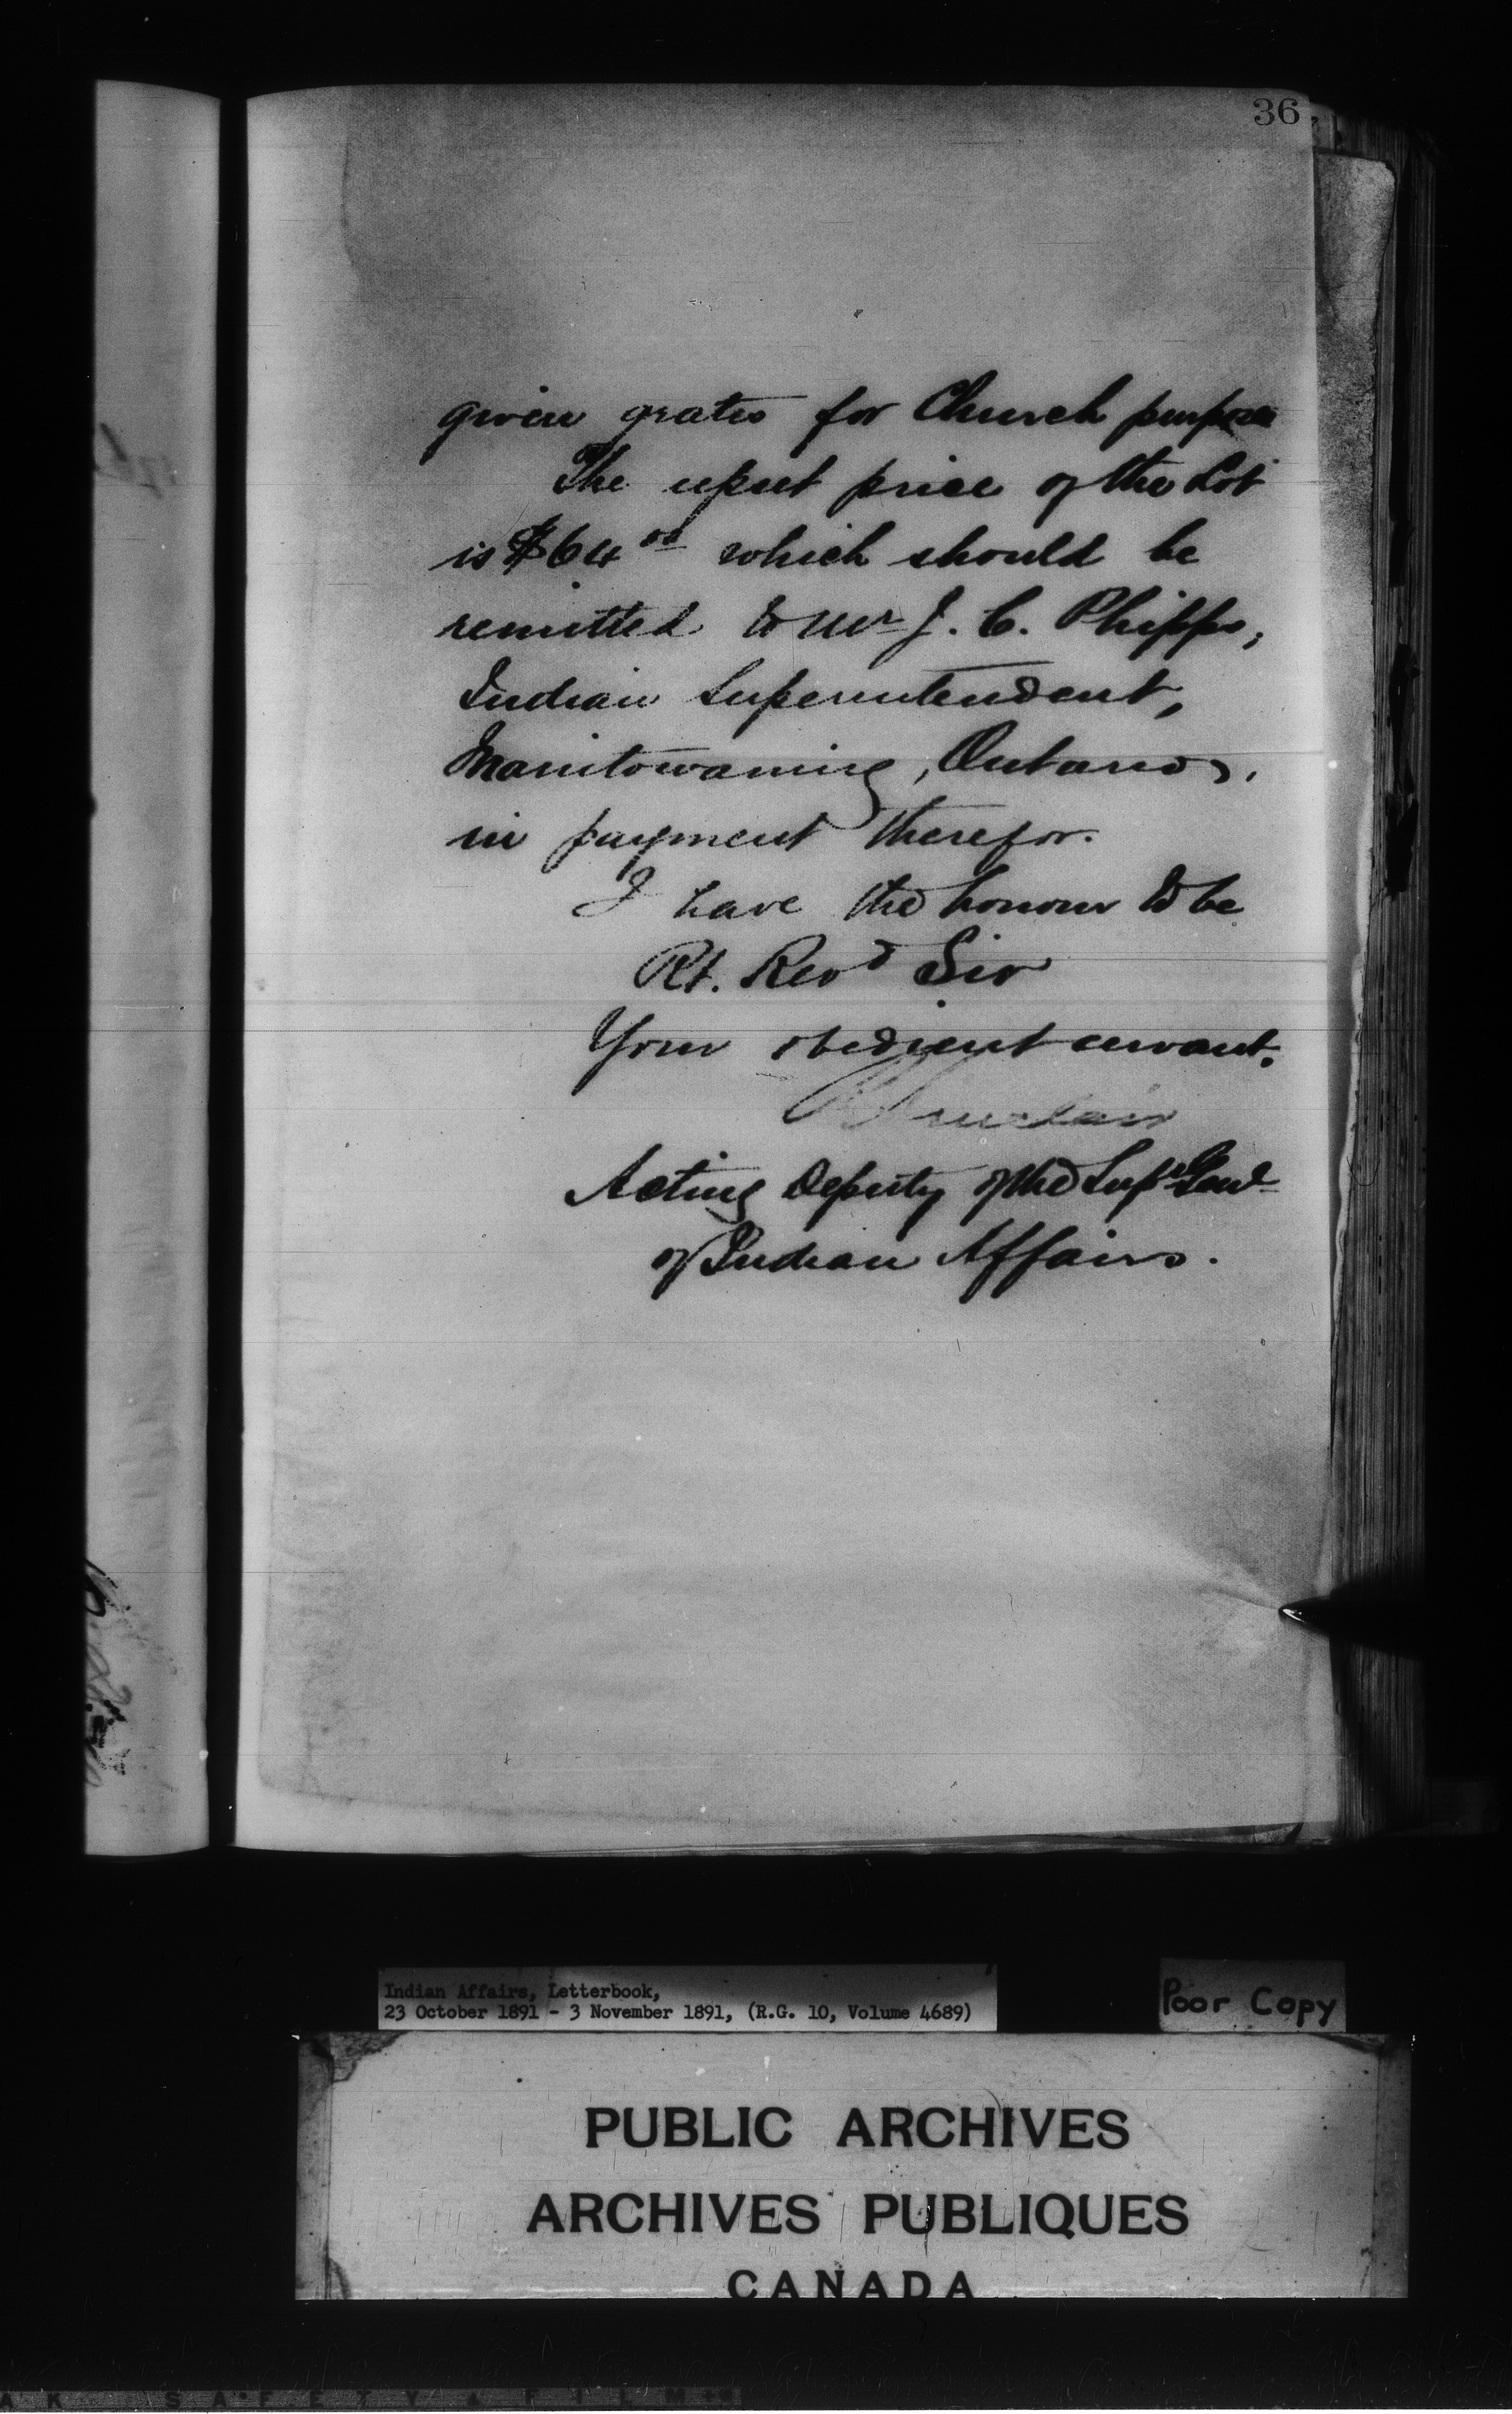 36
given gratis for Church purposes
The upset price of the Lot
is $64.00 which should be
remitted to Mr J. C. Phipps,
Indian Superintendent,
Manitowaning, Ontario,
in payment therefor.
I have the honour to be
Rt. Revd Sir
Your obedient servant.
R Sinclair
Acting Deputy of the Supt Genl
of Indian Affairs.
Indian Affairs, Letterbook,
23 October 1891 - 3 November 1891, (R.G. 10, Volume 4689)
Poor Copy
PUBLIC ARCHIVES
ARCHIVES PUBLIQUES
CANADA
SAFETY FILM